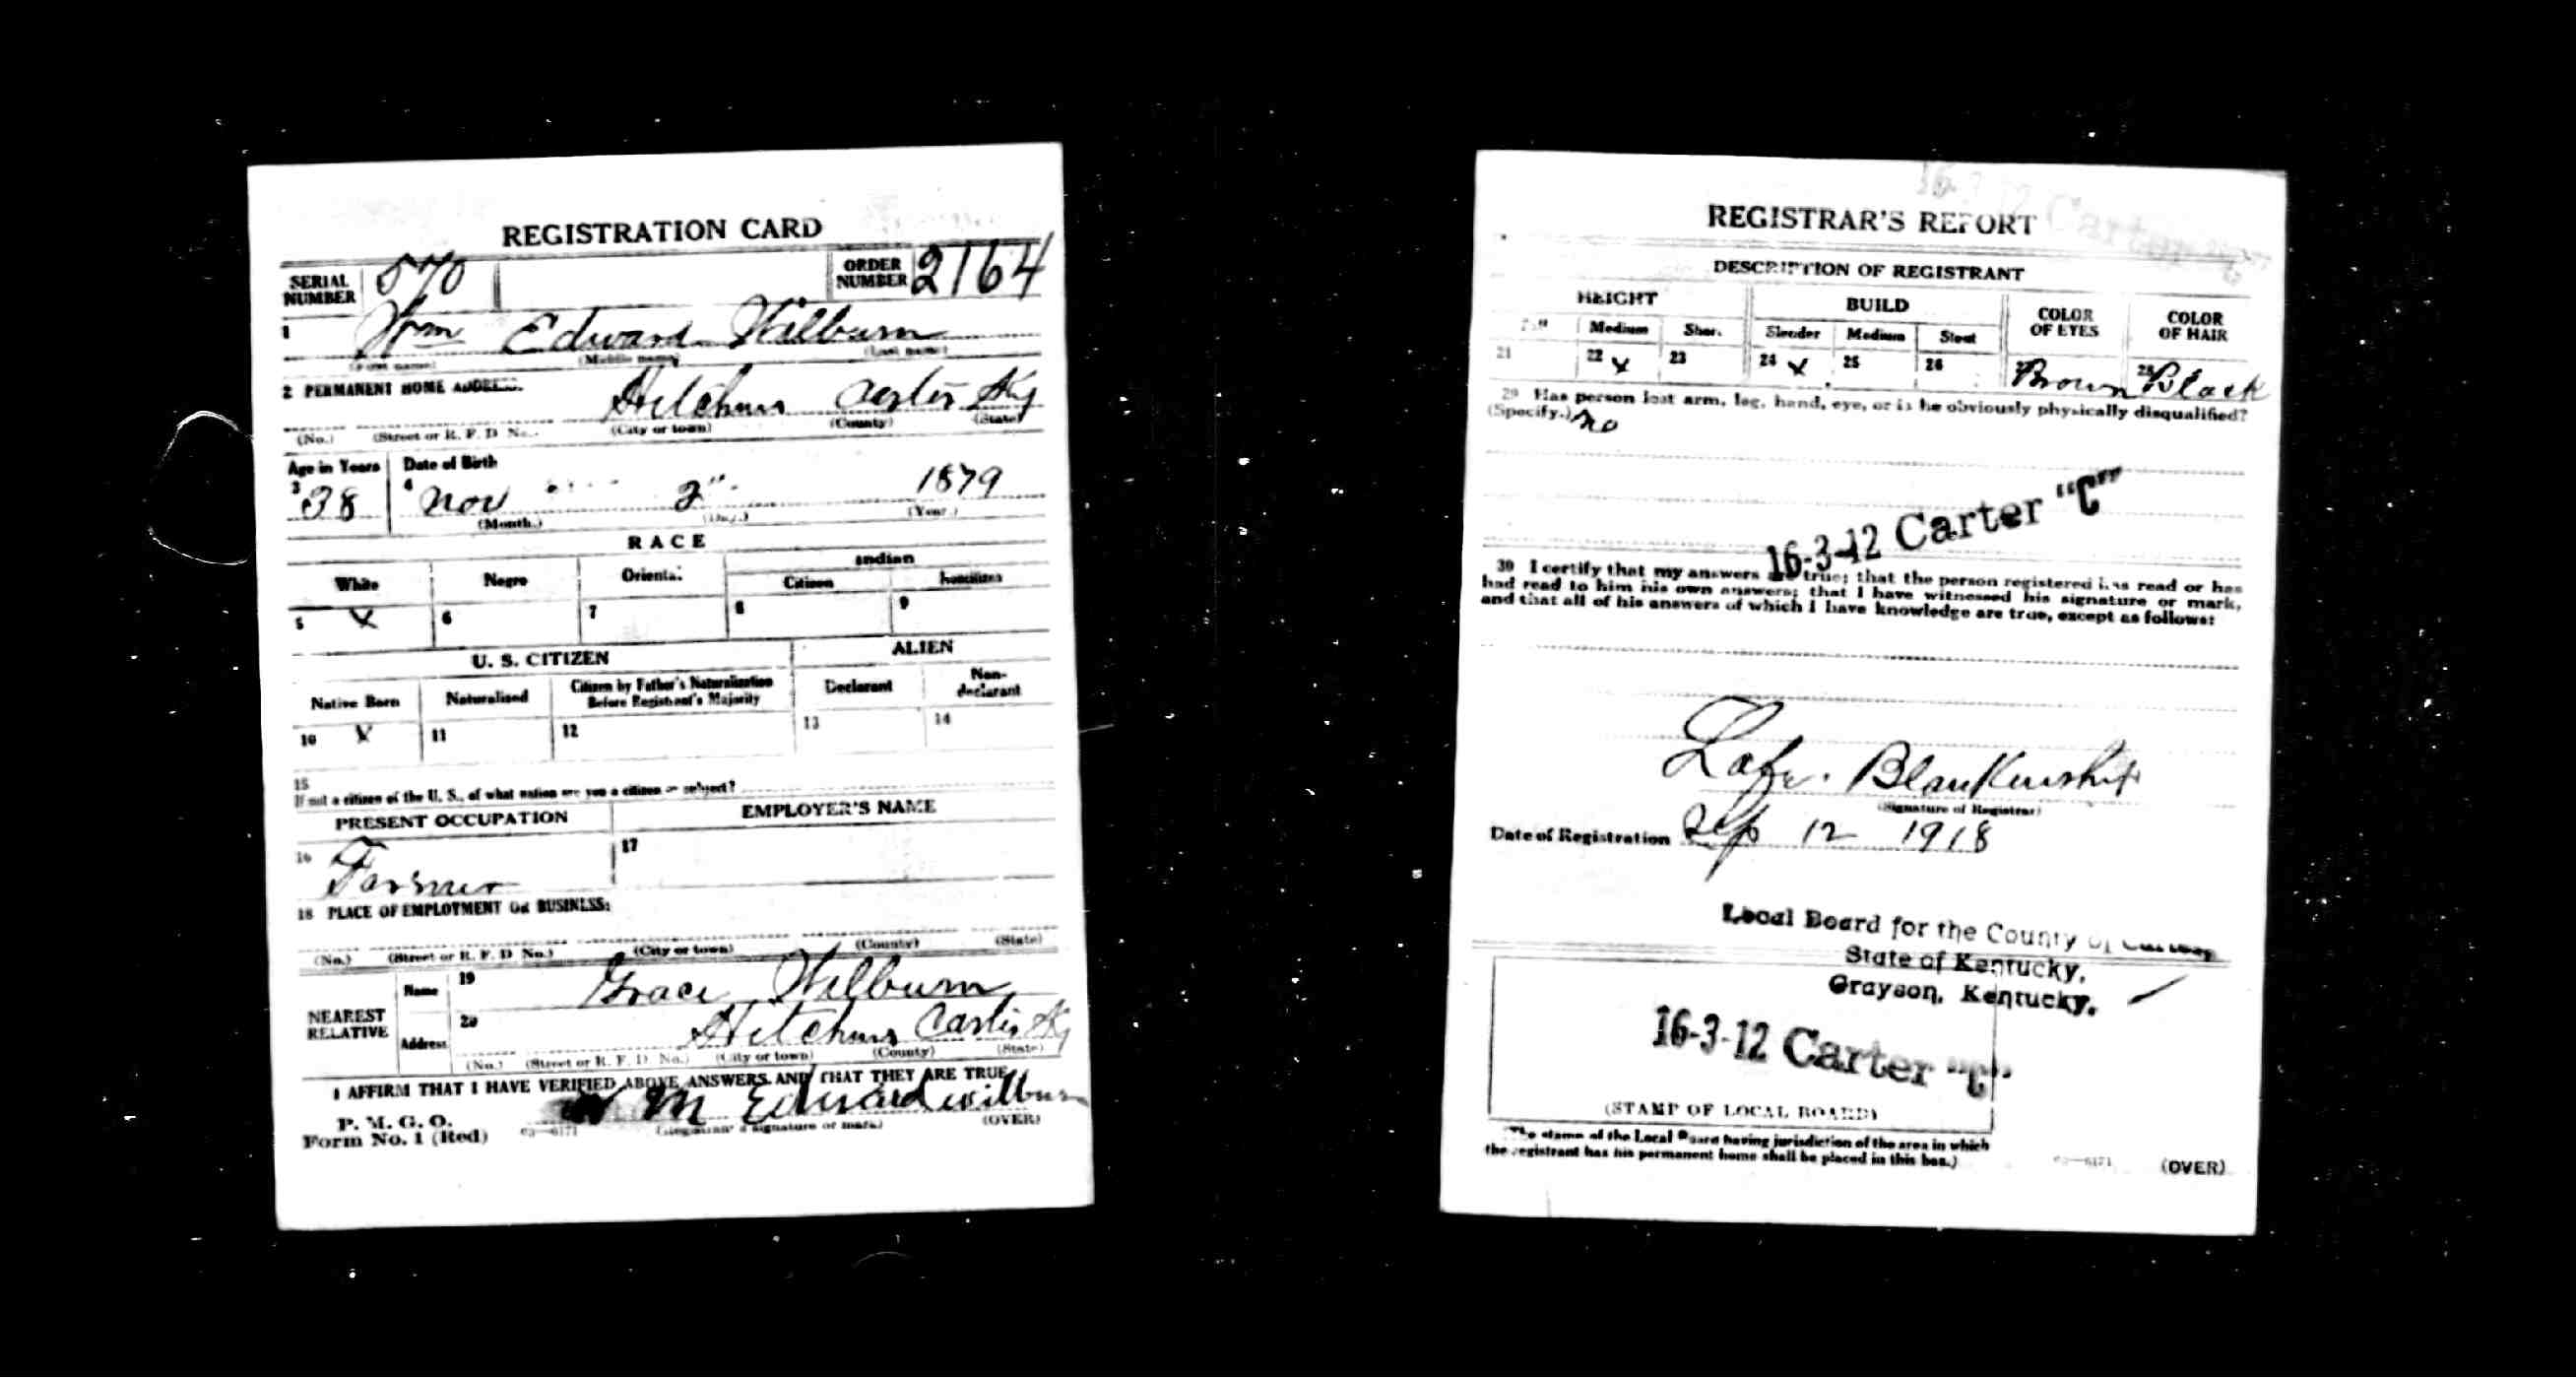 REGISTRATION CARD
SERIAL NUMBER 570 ORDER NUMBER 2164
1 Wm Edward Wilburn
(First name) (Middle name) (Last name)
2 PERMANENT HOME ADDRESS.
Hitchins Carter Ky
(No.) (Street or R. F. D. No.) (City or town) (County) (State)
Age in Years Date of Birth
3 38 4 Nov 2" 1879
(Month.) (Day.) (Year.)
RACE
White Negro Oriental Indian
Citizen Noncitizen
5 X 6 7 8 9
U. S. CITIZEN ALIEN
Native Born Naturalized Citizen by Father's Naturalization Before Registrant's Majority Declarant Non-declarant
10 X 11 12 13 14
15
If not a citizen of the U. S., of what nation are you a citizen or subject?
PRESENT OCCUPATION EMPLOYER'S NAME
16 Farmer 17
18 PLACE OF EMPLOYMENT OR BUSINESS:
(No.) (Street or R. F. D. No.) (City or town) (County) (State)
NEAREST RELATIVE Name 19 Grace Wilburn
Address 20 Hitchins Carter Ky
(No.) (Street or R. F. D. No.) (City or town) (County) (State)
I AFFIRM THAT I HAVE VERIFIED ABOVE ANSWERS AND THAT THEY ARE TRUE
P. M. G. O.
Form No. 1 (Red) 03—6171 W M Edward wilburn
(Registrant's signature or mark) (OVER)
16-3-12 Carter
REGISTRAR'S REPORT
DESCRIPTION OF REGISTRANT
HEIGHT BUILD COLOR OF EYES COLOR OF HAIR
Tall Medium Short Slender Medium Stout
21 22 X 23 24 X 25 26 27 Brown 28 Black
29 Has person lost arm, leg, hand, eye, or is he obviously physically disqualified?
(Specify.) no
16-3-12 Carter "C"
30 I certify that my answers are true; that the person registered has read or has
had read to him his own answers; that I have witnessed his signature or mark,
and that all of his answers of which I have knowledge are true, except as follows:
Lafe. Blankenship
(Signature of Registrar)
Date of Registration Sep 12 1918
Local Board for the County of Carter,
State of Kentucky,
Grayson, Kentucky.
16-3-12 Carter "C"
(STAMP OF LOCAL BOARD)
(The stamp of the Local Board having jurisdiction of the area in which
the registrant has his permanent home shall be placed in this box.)
03—6171 (OVER)